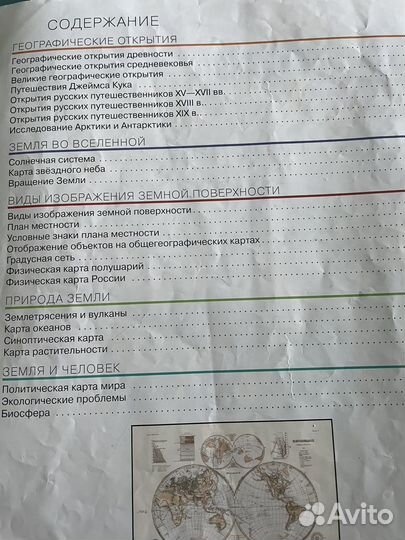 СОДЕРЖАНИЕ
ГЕОГРАФИЧЕСКИЕ ОТКРЫТИЯ
Географические открытия древности
Географические открытия средневековья
Великие географические открытия
Путешествия Джеймса Кука
Открытия русских путешественников XV—XVII вв.
Открытия русских путешественников XVIII в.
Открытия русских путешественников XIX в.
Исследование Арктики и Антарктики
ЗЕМЛЯ ВО ВСЕЛЕННОЙ
Солнечная система
Карта звёздного неба
Вращение Земли
ВИДЫ ИЗОБРАЖЕНИЯ ЗЕМНОЙ ПОВЕРХНОСТИ
Виды изображения земной поверхности
План местности
Условные знаки плана местности
Отображение объектов на общегеографических картах
Градусная сеть
Физическая карта полушарий
Физическая карта России
ПРИРОДА ЗЕМЛИ
Землетрясения и вулканы
Карта океанов
Синоптическая карта
Карта растительности
ЗЕМЛЯ И ЧЕЛОВЕК
Политическая карта мира
Экологические проблемы
Биосфера
Avito